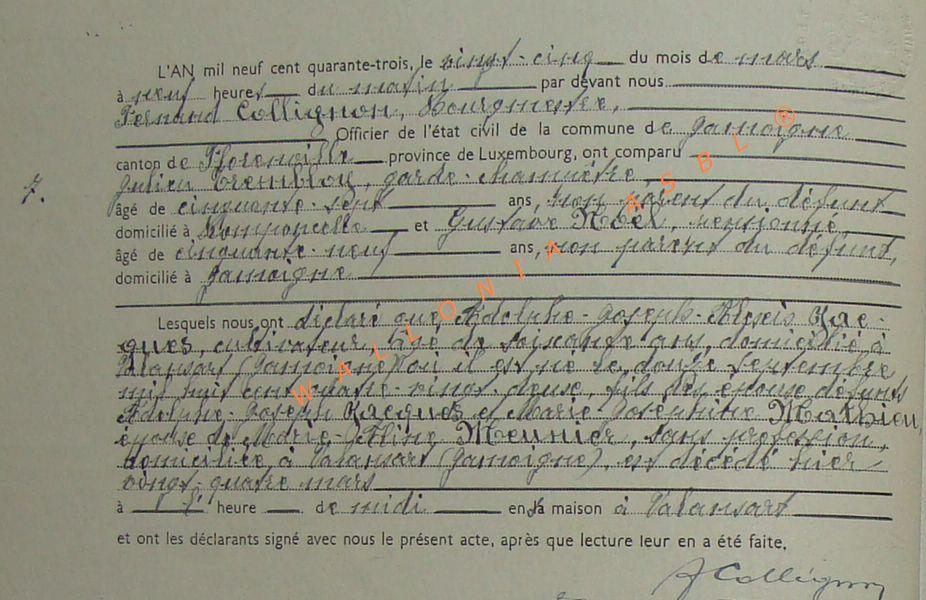 L'AN mil neuf cent quarante-trois, le vingt-cinq du mois de mars
à neuf heures du matin par devant nous
Fernand Collignon, Bourgmestre,
Officier de l'état civil de la commune de Jamoigne
canton de Florenville province de Luxembourg, ont comparu
7.
Julien Trembloy, garde-champêtre,
âgé de cinquante-sept ans, non parent du défunt
domicilié à Romponcelle et Gustave Noël, pensionné,
âgé de cinquante-neuf ans, non parent du défunt,
domicilié à Jamoigne
Lesquels nous ont déclaré que Adolphe-Joseph-Alexis Jac-
ques, cultivateur, âgé de soixante ans, domicilié à
Valansart (Jamoigne) où il est né le douze septembre
mil huit cent quatre-vingt-deux, fils des époux défunts
Adolphe-Joseph Jacques et Marie-Joséphine Mathieu,
époux de Marie-Céline Meunier, sans profession,
domiciliée à Valansart (Jamoigne), est décédé hier
vingt-quatre mars
à heure de midi en sa maison à Valansart
et ont les déclarants signé avec nous le présent acte, après que lecture leur en a été faite.
FCollignon
WALLONIA ASBL ®